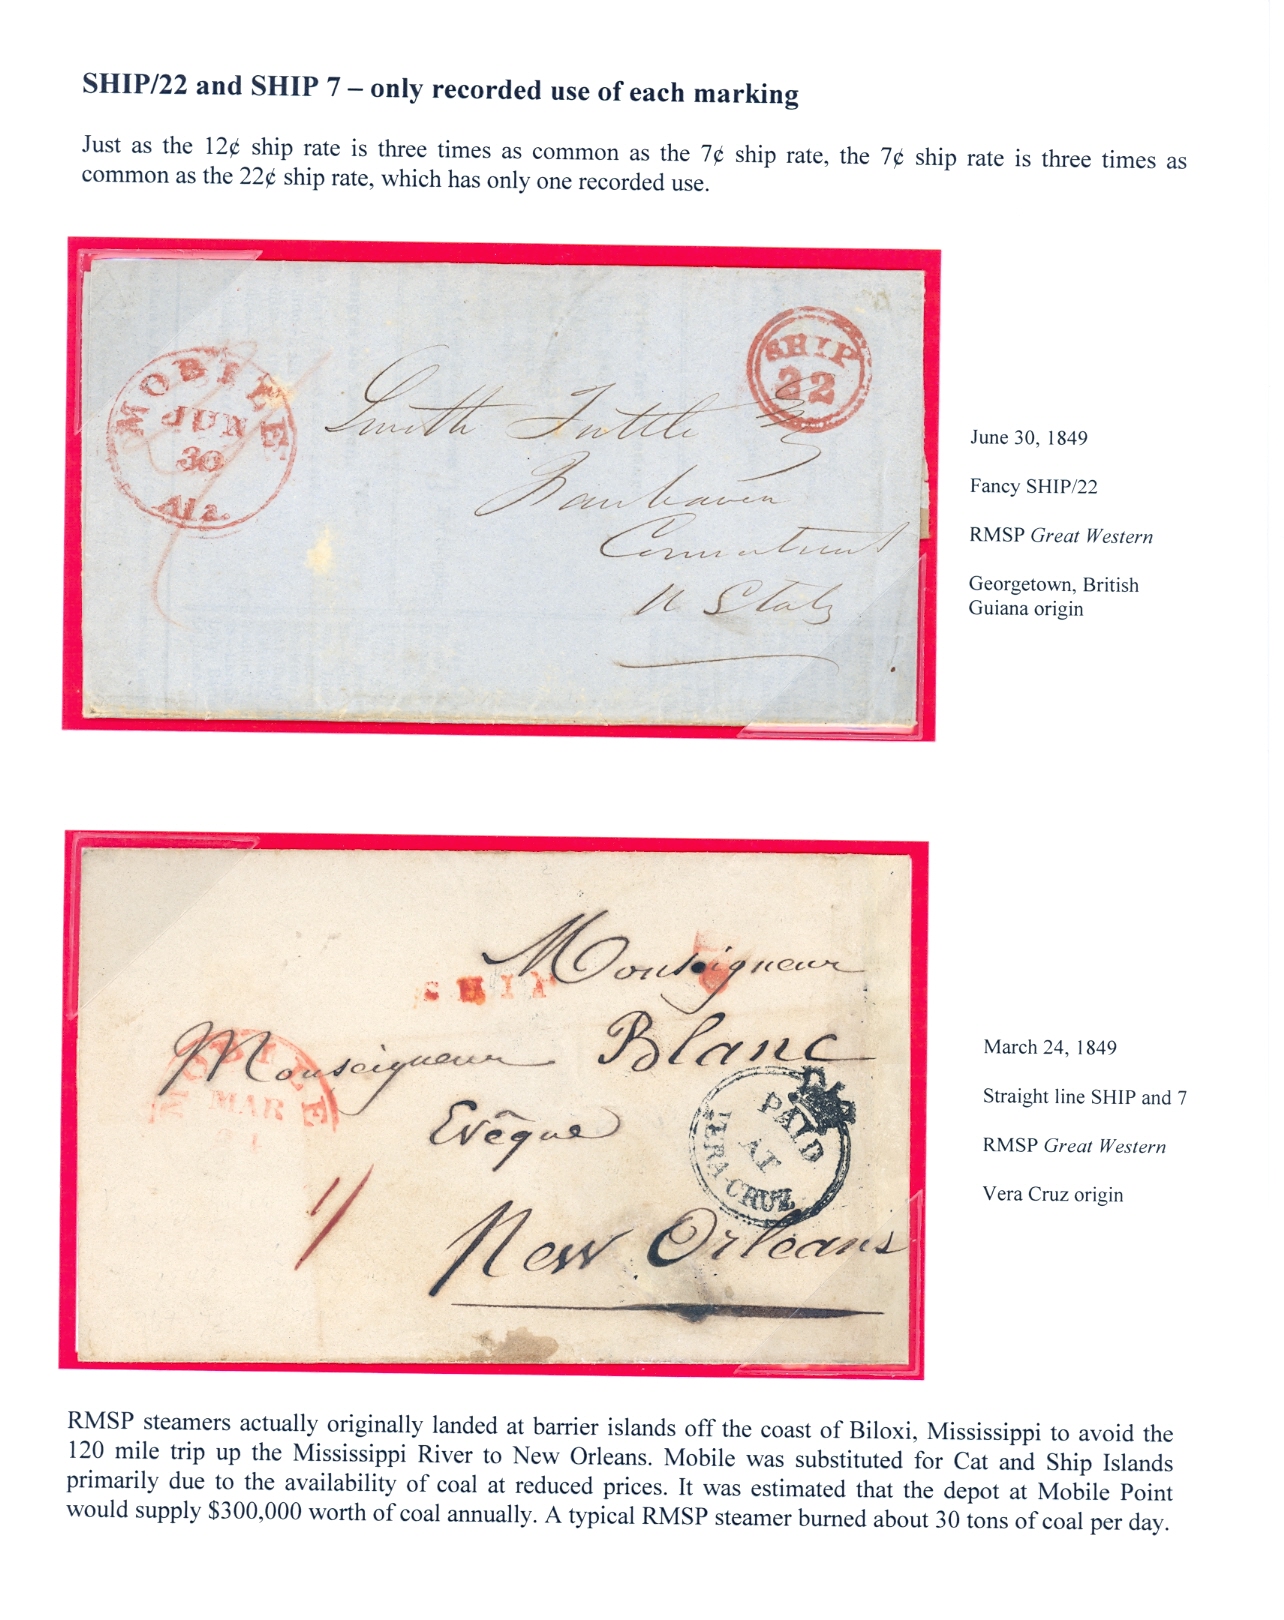 SHIP/22 and SHIP 7 – only recorded use of each marking
Just as the 12¢ ship rate is three times as common as the 7¢ ship rate, the 7¢ ship rate is three times as
common as the 22¢ ship rate, which has only one recorded use.
MOBILE
JUN
30
Ala.
SHIP
22
Smith Tuttle Esq
Fairhaven
Connecticut
U States
June 30, 1849
Fancy SHIP/22
RMSP Great Western
Georgetown, British
Guiana origin
SHIP
Monseigneur
Monseigneur Blanc
Evêque
New Orleans
MOBILE
MAR
24
PAID
AT
VERA-CRUZ
March 24, 1849
Straight line SHIP and 7
RMSP Great Western
Vera Cruz origin
RMSP steamers actually originally landed at barrier islands off the coast of Biloxi, Mississippi to avoid the
120 mile trip up the Mississippi River to New Orleans. Mobile was substituted for Cat and Ship Islands
primarily due to the availability of coal at reduced prices. It was estimated that the depot at Mobile Point
would supply $300,000 worth of coal annually. A typical RMSP steamer burned about 30 tons of coal per day.